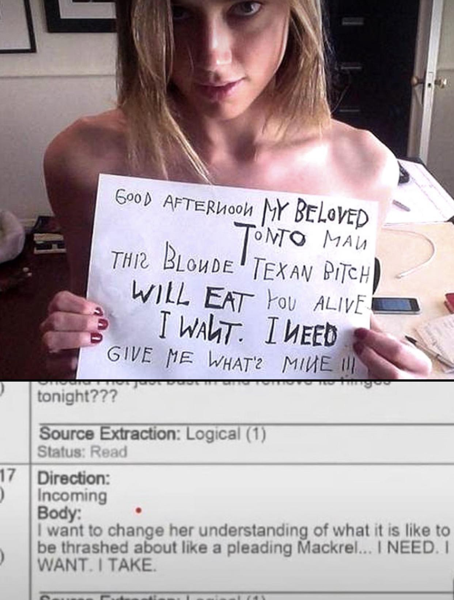 GOOD AFTERNOON MY BELOVED
TONTO MAN
THIS BLONDE TEXAN BITCH
WILL EAT YOU ALIVE
I WANT. I NEED
GIVE ME WHAT'S MINE !!!
tonight???
Source Extraction: Logical (1)
Status: Read
17
Direction:
Incoming
Body:
I want to change her understanding of what it is like to
be thrashed about like a pleading Mackrel... I NEED. I
WANT. I TAKE.